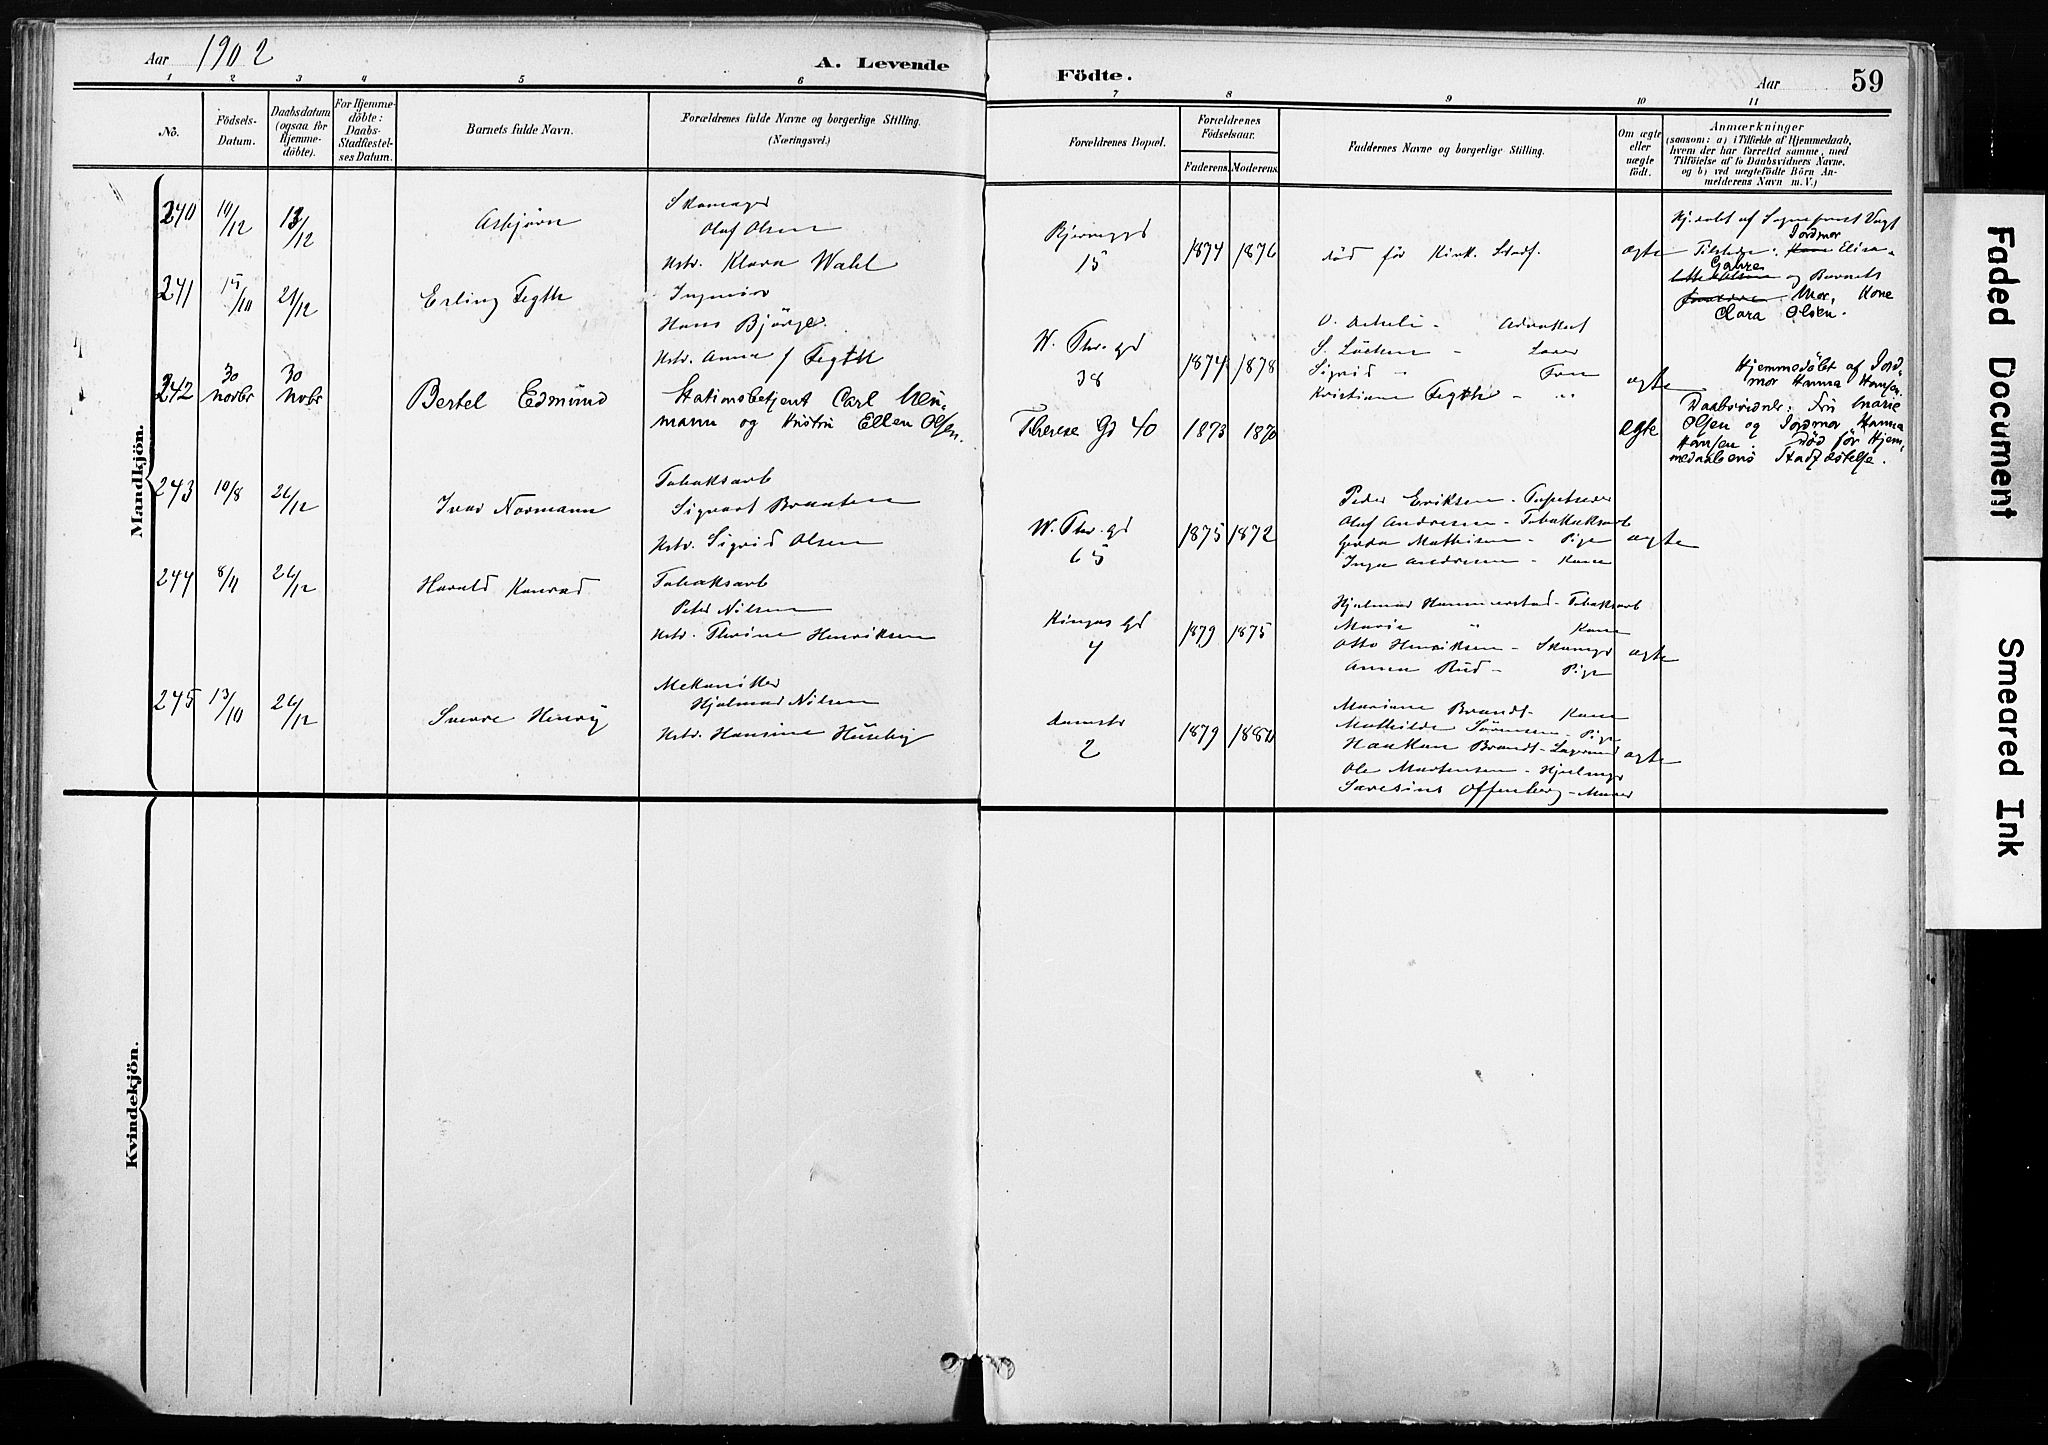 Aar 1902
A. Levende Födte.
Aar 59
1 2 3 4 5 6 7 8 9 10 11
No.
Födsels-Datum.
Daabsdatum (ogsaa for Hjemme-döbte).
For Hjemme-döbte: Daabs-Stadfæstel-ses Datum.
Barnets fulde Navn.
Forældrenes fulde Navne og borgerlige Stilling.
(Næringsvei.)
Forældrenes Bopæl.
Forældrenes Födselsaar.
Faderens. Moderens.
Faddernes Navne og borgerlige Stilling.
Om ægte eller uægte födt.
Anmærkninger
(saasom: a) i Tilfælde af Hjemmedaab,
hvem der har forrettet samme, med
Tilföielse af to Daabsvidners Navne,
og b) ved uægtefödte Börn An-
melderens Navn m. V.)
Mandkjön.
240 10/12 13/12 Asbjörn
Skomager
Olaf Olsen
Hstr. Klara Wahl
15 1874 1876 död før Kirk. Stadf. ægte
Hj.døbt af Sognepræst Vogt
Jordmor
Elisa-
og Barnets
Mor, Kone
Clara Olsen.
241 15/10 21/12 Erling Fegth
Ingeniør
Hans Bjørge
Hstr. Anna f Fegth
W. Thr. gd
38 1874 1878
Advokat
Sigrid " Frue
Kristiane Fegth - "
ægte
242 30 novbr 30 novbr Bertel Edmund
Stationsbetjent Carl Neu-
mann og Hustru Ellen Olsen.
Therese Gd 40 1873 1870 ægte
Hjemmedøbt af Jord-
mor Hanna Hansen.
Daabsvidner: Fru Marie
Olsen og Jordmor Hanna
Hansen. Død før Hjem-
medaabens Stadfæstelse.
243 10/8 26/12 Ivar Normann
Tobaksarb
Sigvart Braaten
Hstr. Sigrid Olsen
W. Thr. gd
65 1875 1872
Peder Eriksen - Tapetserer
Olaf Andresen - Tobakksarb
Gerda Mathisen - Pige
Inga Andresen - Kone
ægte
244 8/11 26/12 Harald Konrad
Tobaksarb
Peter Nilsen
Hstr. Thrine Henriksen
Kingos Gd
4 1879 1875
Hjalmar Hammerstad - Tobaksarb
Marie " Kone
Otto Henriksen - Skomgr
Anna Rud - Pige
ægte
245 13/10 26/12 Sverre Henry
Mekaniker
Hjalmar Nilsen
Hstr. Hansine Huseby
Damstr
2 1879 1880
Mariane Brandt - Kone
Mathilde Sørensen - Pige
Haakon Brandt - Lagermd
Ole Martensen - Hjulmgr
Offenberg - Murer
ægte
Kvindekjön.
Faded Document
Smeared Ink